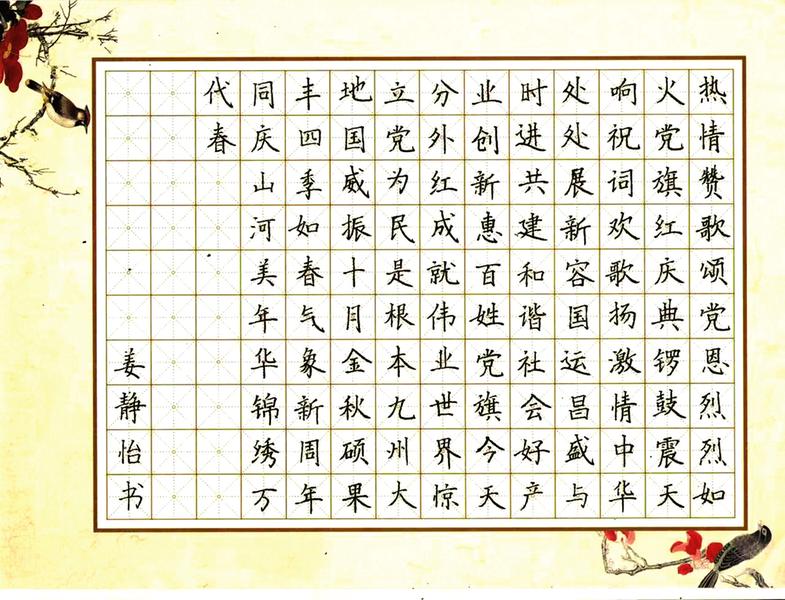 热情赞歌颂党恩烈烈如
火党旗红庆典锣鼓震天
响祝词欢歌扬激情中华
处处展新容国运昌盛与
时进共建和谐社会好产
业创新惠百姓党旗今天
分外红成就伟业世界惊
立党为民是根本九州大
地国威振十月金秋硕果
丰四季如春气象新周年
同庆山河美年华锦绣万
代春
姜静怡书